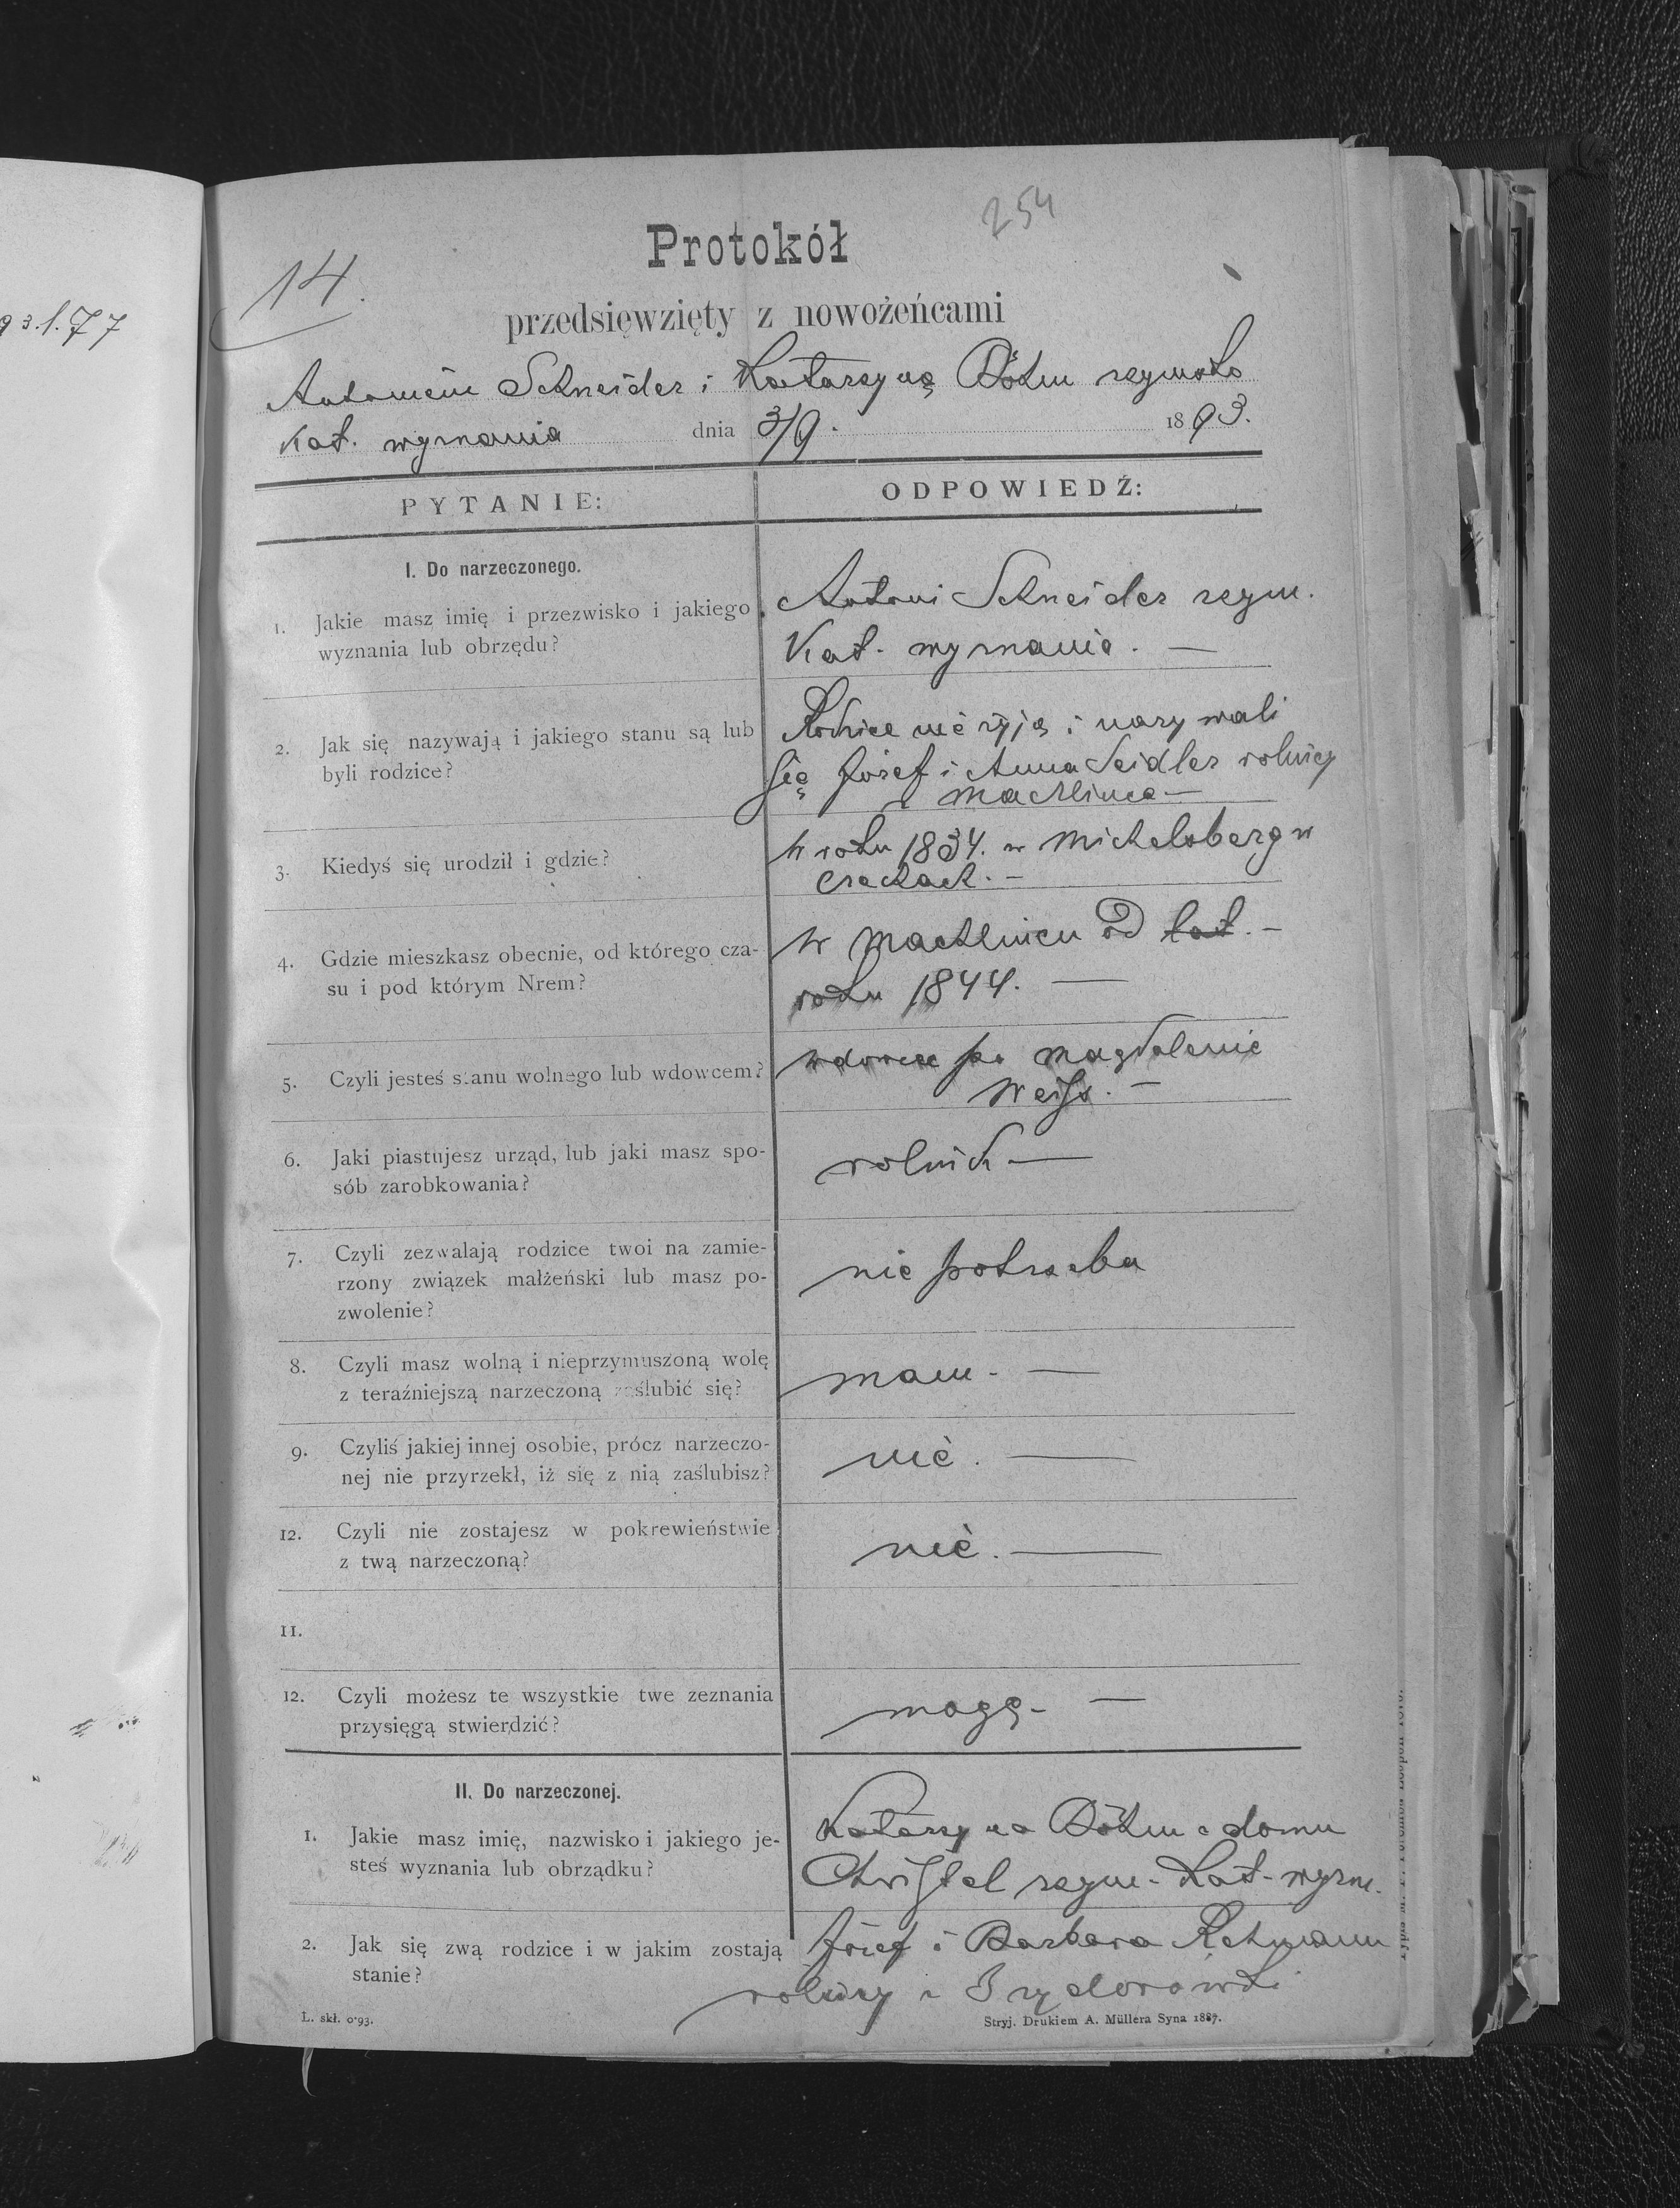 254
Protokół
14.
93.l.77
przedsięwzięty z nowożeńcami
Antonim Schneider i Katarzyną Böhm rzymsko
kat. wyznania dnia 3/9. 1893.
PYTANIE:
ODPOWIEDŹ:
I. Do narzeczonego.
1. Jakie masz imię i przezwisko i jakiego
wyznania lub obrzędu?
Antoni Schneider rzym.
Kat. wyznania. —
2. Jak się nazywają i jakiego stanu są lub
byli rodzice?
Rodzice nie żyją i nazywali
się Józef i Anna Seidler rolnicy
z Machlińca —
3. Kiedyś się urodził i gdzie?
W roku 1834. w Michelsberg w
Czechach. —
4. Gdzie mieszkasz obecnie, od którego cza-
su i pod którym Nrem?
W Machlińcu od lat. —
roku 1844. —
5. Czyli jesteś stanu wolnego lub wdowcem?
wdowiec po Magdalenie
Weiss. —
6. Jaki piastujesz urząd, lub jaki masz spo-
sób zarobkowania?
rolnik —
7. Czyli zezwalają rodzice twoi na zamie-
rzony związek małżeński lub masz po-
zwolenie?
nie potrzeba
8. Czyli masz wolną i nieprzymuszoną wolę
z teraźniejszą narzeczoną zaślubić się?
mam. —
9. Czyliś jakiej innej osobie, prócz narzeczo-
nej nie przyrzekł, iż się z nią zaślubisz?
nie. —
12. Czyli nie zostajesz w pokrewieństwie
z twą narzeczoną?
nie. —
11.
12. Czyli możesz te wszystkie twe zeznania
przysięgą stwierdzić?
mogę. —
II. Do narzeczonej.
1. Jakie masz imię, nazwisko i jakiego je-
steś wyznania lub obrządku?
Katarzyna Böhm z domu
Christel rzym. Kat. wyzn.
2. Jak się zwą rodzice i w jakim zostają
stanie?
Józef i Barbara
rolnicy z Izydorówki
L. skł. 0·93.
Stryj. Drukiem A. Müllera Syna 1887.